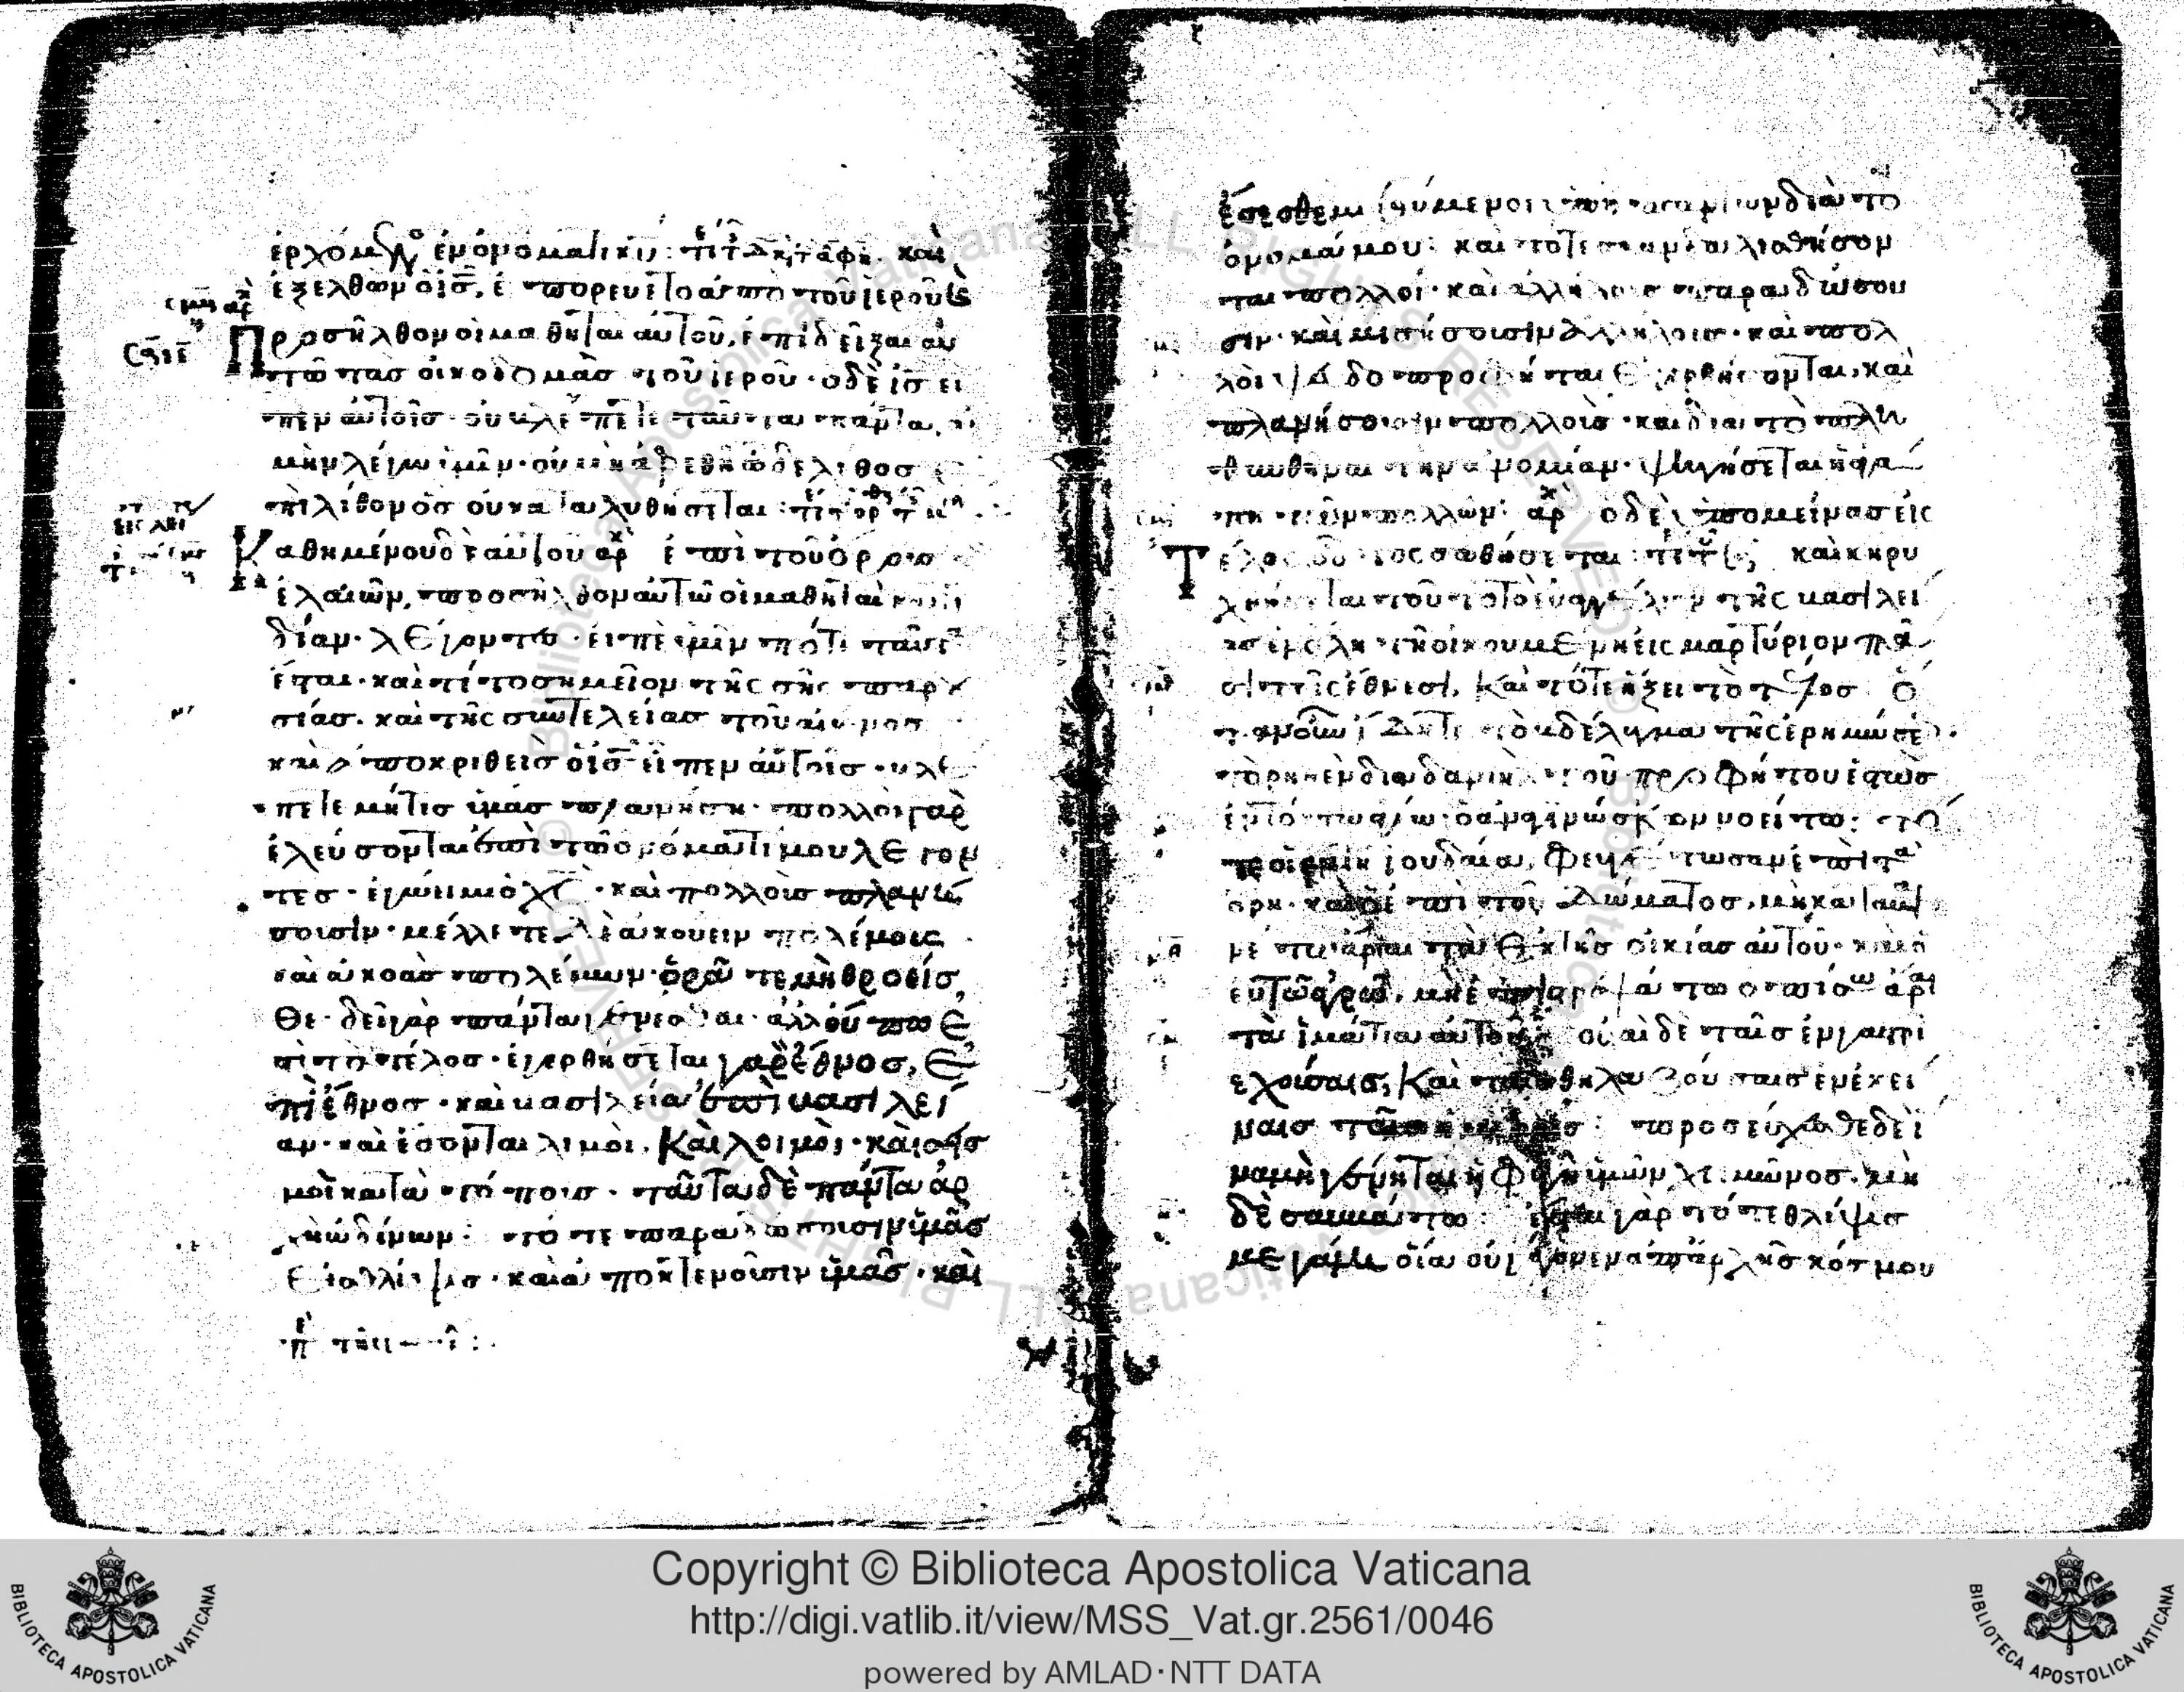 ἐρχόμενος ἐν ὀνόματι κυ καὶ
ἐξελθὼν ὁ ις, ἐπορεύετο ἀπὸ τοῦ ἱεροῦ
Προσῆλθον οἱ μαθηταὶ αὐτοῦ, ἐπιδεῖξαι αὐ
τῶ τὰσ οἰκοδομὰσ τοῦ ἱεροῦ· ὁ δὲ ις εἶ
πεν αὐτοῖσ· οὐ βλέπετε ταῦτα πάντα,
μὴν λέγω ὑμῖν· οὐ μὴ ἀφεθῆ ὧδε λίθοσ
ἐπὶ λίθον ὃσ οὐ καταλυθήσεται:
Καθημένου δὲ αὐτοῦ ἐπὶ τοῦ ὄρουσ
ἐλαιῶν, προσῆλθον αὐτῶ οἱ μαθηταὶ
δίαν· λέγοντεσ· εἰπὲ ἡμῖν πότε ταῦτα
ἔσται· καὶ τί τὸ σημεῖον τῆς σῆς παρου
σίασ· καὶ τῆς συντελείασ τοῦ αἰῶνοσ
καὶ ἀποκριθεὶσ ὁ ις εἶπεν αὐτοῖσ· βλέ
πετε μήτισ ὑμᾶσ πλανήση· πολλοὶ γὰρ
ἐλεύσονται ἐπὶ τῶ ὀνόματί μου λέγον
τεσ· ἐγώ εἰμι ὁ χς· καὶ πολλοὺσ πλανή
σουσιν· μέλλετε δὲ ἀκούειν πολέμους
καὶ ἀκοὰσ πολέμων· ὁρᾶτε μὴ θροεῖσ
θε· δεῖ γὰρ πάντα γενέσθαι· ἀλλ' οὔπω ἐ
στὶ τὸ τέλοσ· ἐγερθήσεται γὰρ ἔθνοσ, ἐ
πὶ ἔθνοσ· καὶ βασιλεία ἐπὶ βασιλεί
αν· καὶ ἔσονται λιμοὶ, καὶ λοιμοὶ· καὶ σεισ
μοὶ κατὰ τόπουσ· ταῦτα δὲ πάντα ἀρ
χὴ ὠδίνων: τότε παραδώσουσιν ὑμᾶσ
εἰσ θλίψισ· καὶ ἀποκτενοῦσιν ὑμᾶσ· καὶ
ἔσεσθε μισούμενοι ὑπὸ πάντων διὰ τὸ
ὄνομά μου· καὶ τότε σκανδαλισθήσον
ται πολλοί· καὶ ἀλλήλουσ παραδώσου
σιν· καὶ μισήσουσιν ἀλλήλουσ· καὶ πολ
λοὶ ψευδοπροφῆται ἐγερθήσονται, καὶ
πλανήσουσιν πολλοὺσ· καὶ διὰ τὸ πλη
θυνθῆναι τὴν ἀνομίαν· ψυγήσεται ἡ ἀγά
πη τῶν πολλῶν· ὁ δὲ ὑπομείνασ εἰς
Τέλος οὗτος σωθήσεται: καὶ κηρυ
χθήσεται τοῦτο τὸ εὐαγγέλιον τῆς βασιλεί
ασ ἐν ὅλη τῆ οἰκουμένη εἰς μαρτύριον πᾶ
σι τοῖς ἔθνεσι, καὶ τότε ἥξει τὸ τέλοσ
ὅταν οὖν ἴδητε τὸ βδέλυγμα τῆς ἐρημώσε
τὸ ρηθὲν διὰ δανιὴλ τοῦ προφήτου ἑστὼσ
ἐν τόπω ἁγίω· ὁ ἀναγινώσκων νοείτω: τό
τε οἱ ἐν τῆ ἰουδαία, φευγέτωσαν ἐπὶ τὰ
ὄρη· καὶ ὁ ἐπὶ τοῦ δώματοσ, μὴ καταβαι
νέτω ἆραι τὰ ἐκ τῆσ οἰκίασ αὐτοῦ· καὶ ὁ
ἐν τῶ ἀγρῶ, μὴ ἐπιστρεψάτω ὀπίσω ἆραι
τὰ ἱμάτια αὐτοῦ: οὐαὶ δὲ ταῖσ ἐν γαστρὶ
ἐχούσαισ, καὶ ταῖσ θηλαζούσαισ ἐν ἐκεί
ναισ ταῖσ ἡμέραισ: προσεύχεσθε δὲ ἵ
να μὴ γένηται ἡ φυγὴ ὑμῶν χειμῶνοσ, μη
δὲ σαββάτω: ἔσται γὰρ τότε θλίψισ
μεγάλη οἵα οὐ γέγονεν ἀπ' ἀρχῆσ κόσμου
Copyright © Biblioteca Apostolica Vaticana
http://digi.vatlib.it/view/MSS_Vat.gr.2561/0046
powered by AMLAD·NTT DATA
BIBLIOTECA APOSTOLICA VATICANA
BIBLIOTECA APOSTOLICA VATICANA